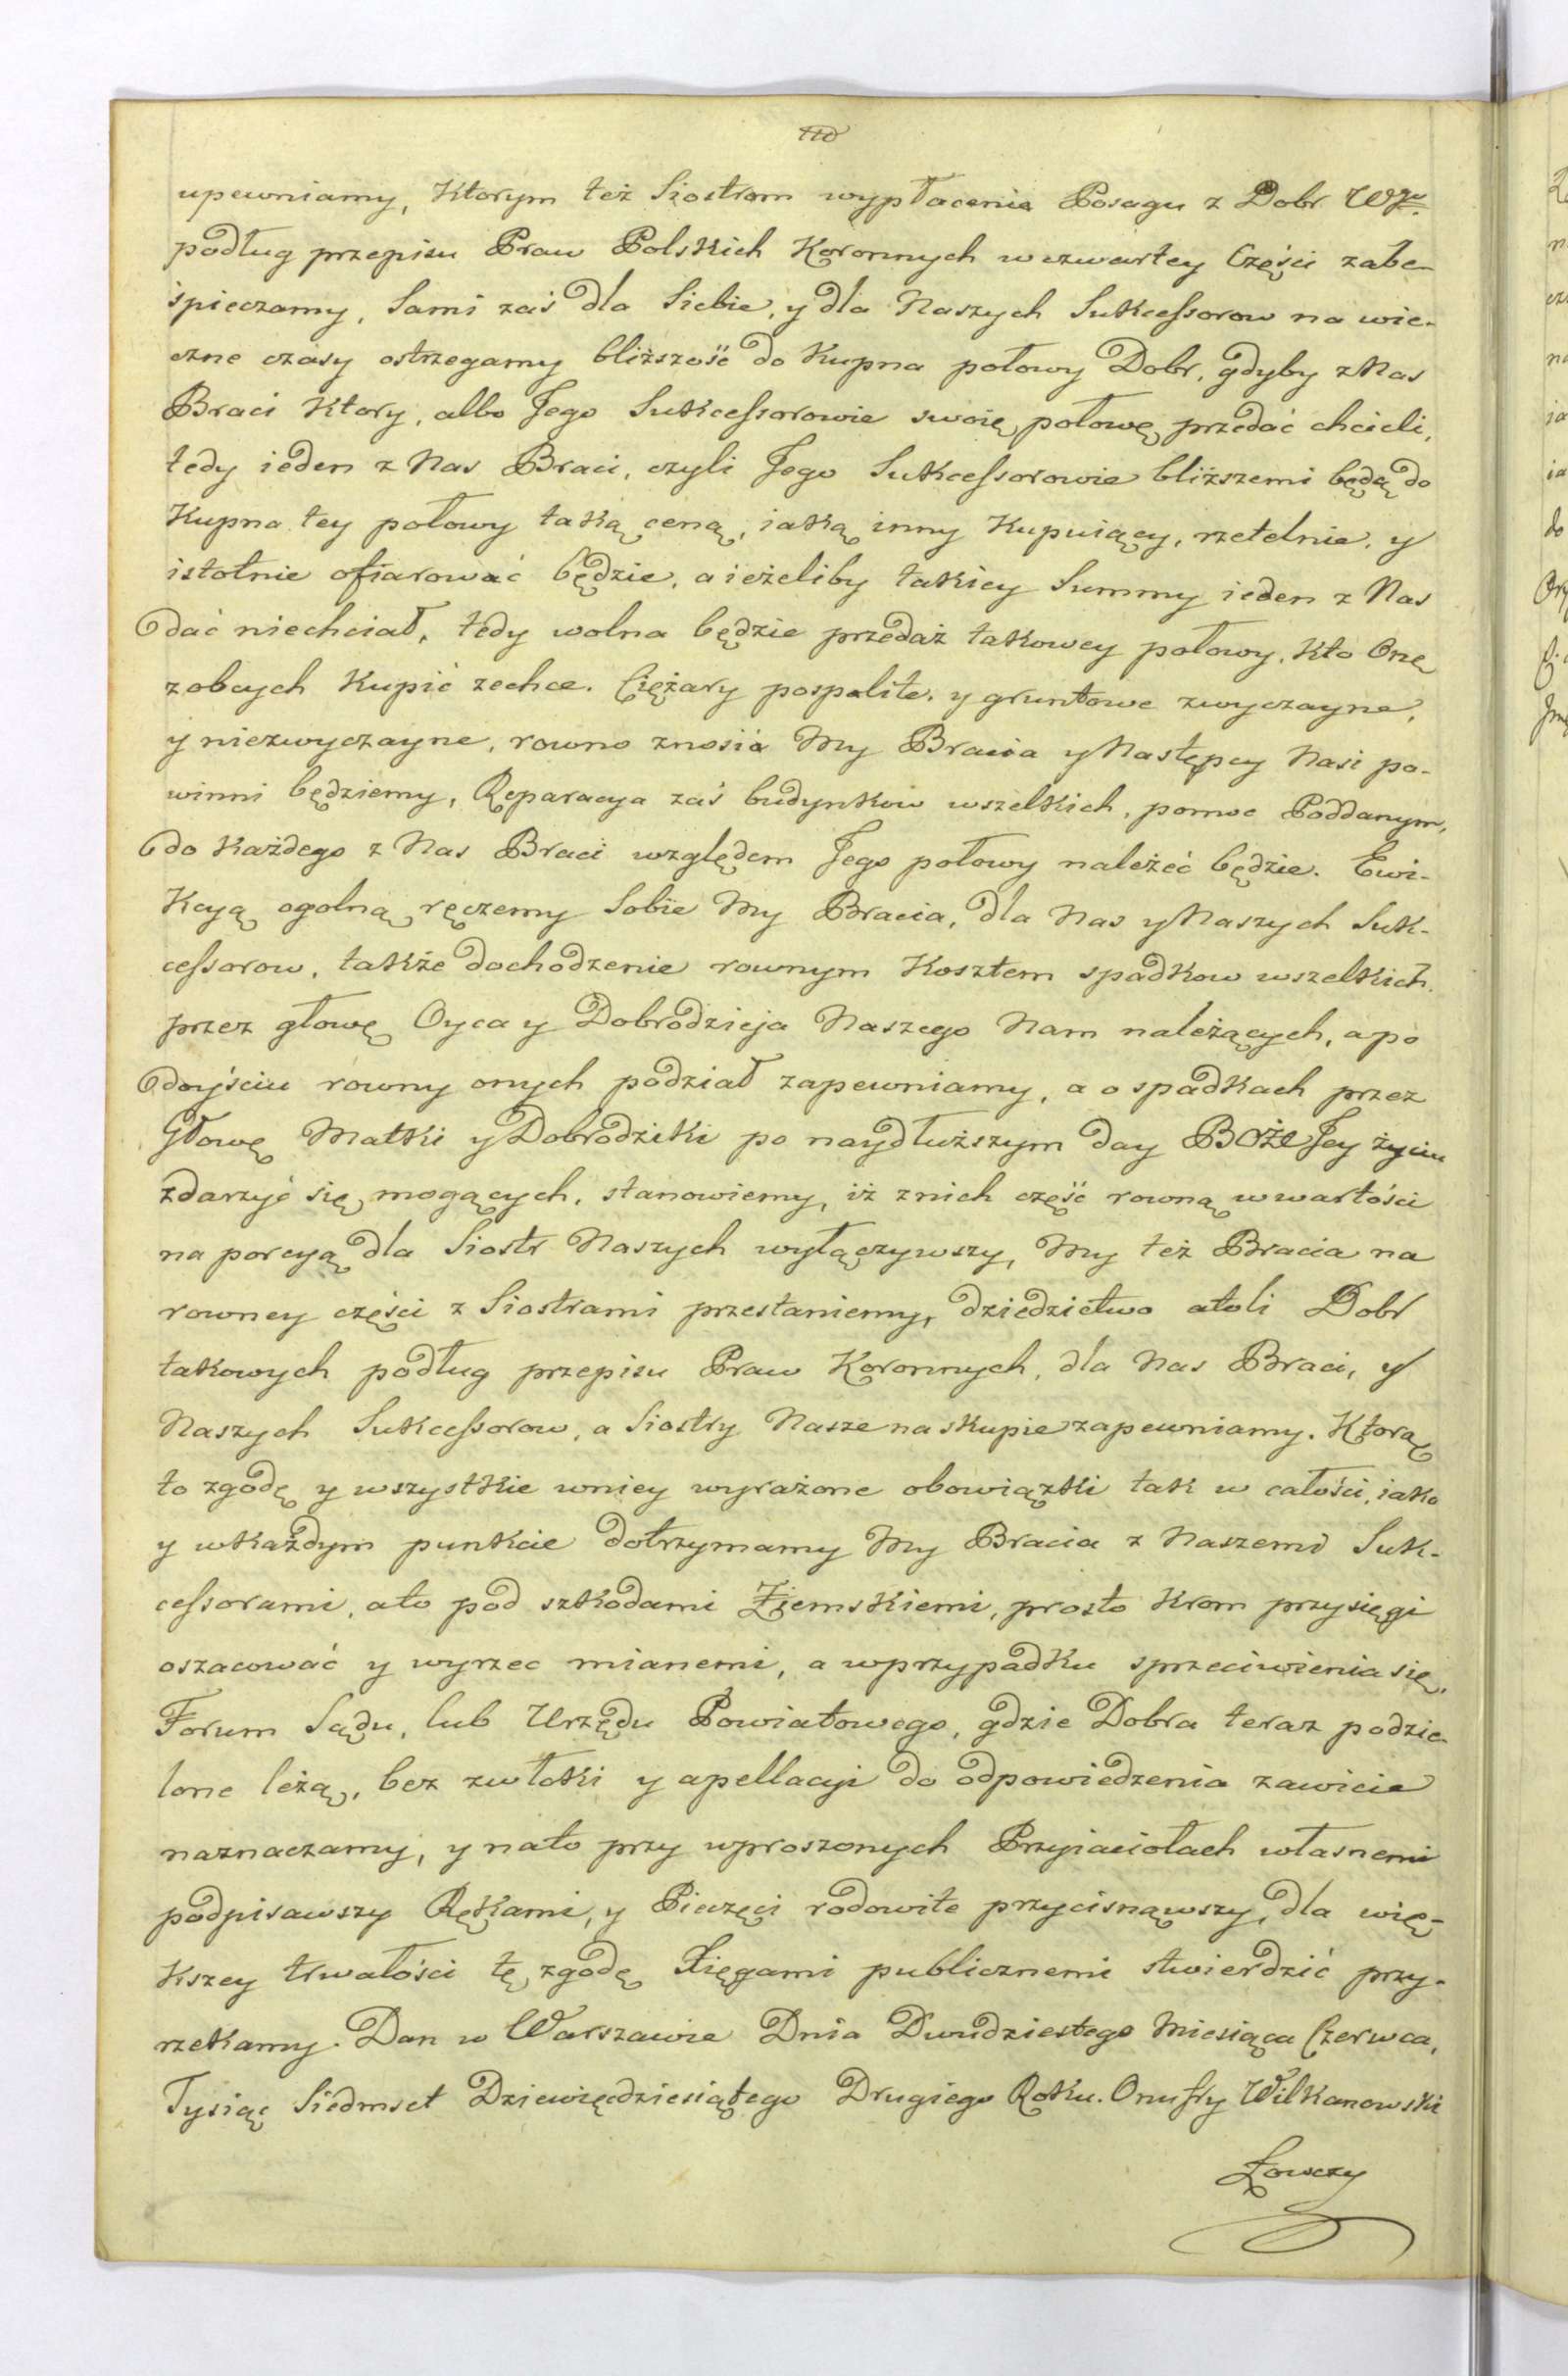 upewniamy, Ktorym też Siostrom wypłacenie Posagu z Dobr
podług przepisu Praw Polskich Koronnych w czwartey Części zabe-
spieczamy, Sami zaś dla Siebie, y dla Naszych Sukcessorow na wie-
czne czasy ostrzegamy bliższość do Kupna połowy Dobr, gdyby z Nas
Braci Ktory, albo Jego Sukcessorowie swoię połowę przedać chcieli,
tedy ieden z Nas Braci, czyli Jego Sukcessorowie bliższemi będą do
Kupna tey połowy taką ceną, iaką inny Kupuiący, rzetelnie, y
istotnie ofiarować będzie, a ieżeliby takiey Summy ieden z Nas
dać niechciał, tedy wolna będzie przedaż takowey połowy, Kto Onę
z obcych Kupić zechce. Ciężary pospolite, y gruntowe zwyczayne,
y niezwyczayne, rowno znosić My Bracia y Następcy Nasi po-
winni będziemy, Reparacya zaś budynkow wszelkich, pomoc Poddanym,
do Każdego z Nas Braci względem Jego połowy należeć będzie. Ewi-
Kcyą ogolną ręczemy Sobie My Bracia, dla Nas y Naszych Suk-
cessorow, także dochodzenie rownym Kosztem spadkow wszelkich
przez głowę Oyca y Dobrodzieja Naszego Nam należących, a po
doyściu rowny onych podział zapewniamy, a o spadkach przez
Głowę Matki y Dobrodziki po naydłuższym day BOŻE Jey życiu
zdarzyć się mogących, stanowiemy, iż z nich część rowną w wartości
na porcyą dla Siostr Naszych wyłączywszy, My też Bracia na
rowney części z Siostrami przestaniemy, dziedzictwo atoli Dobr
takowych podług przepisu Praw Koronnych, dla Nas Braci, y
Naszych Sukcessorow, a Siostry Nasze na skupie zapewniamy. Ktorą
to zgodę y wszystkie w niey wyrażone obowiązki tak w całości, iako
y w każdym punkcie dotrzymamy My Bracia z Naszemi Suk-
cessorami, a to pod szkodami Ziemskiemi, prosto Krom przysięgi
oszacować y wyrzec mianemi, a w przypadku sprzeciwienia się,
Forum Sądu, lub Urzędu Powiatowego, gdzie Dobra teraz podzie-
lone leżą, bez zwłoki y apellacyi do odpowiedzenia zawicie
naznaczamy, y na to przy uproszonych Przyiaciołach własnemi
podpisawszy Rękami, y Pieczęci rodowite przycisnąwszy, dla wię-
Kszey trwałości tę zgodę Xięgami publicznemi stwierdzić przy-
rzekamy. Dan w Warszawie Dnia Dwudziestego Miesiąca Czerwca,
Tysiąc Siedmset Dziewięćdziesiątego Drugiego Roku. Onufry Wilkanowski
Łowczy